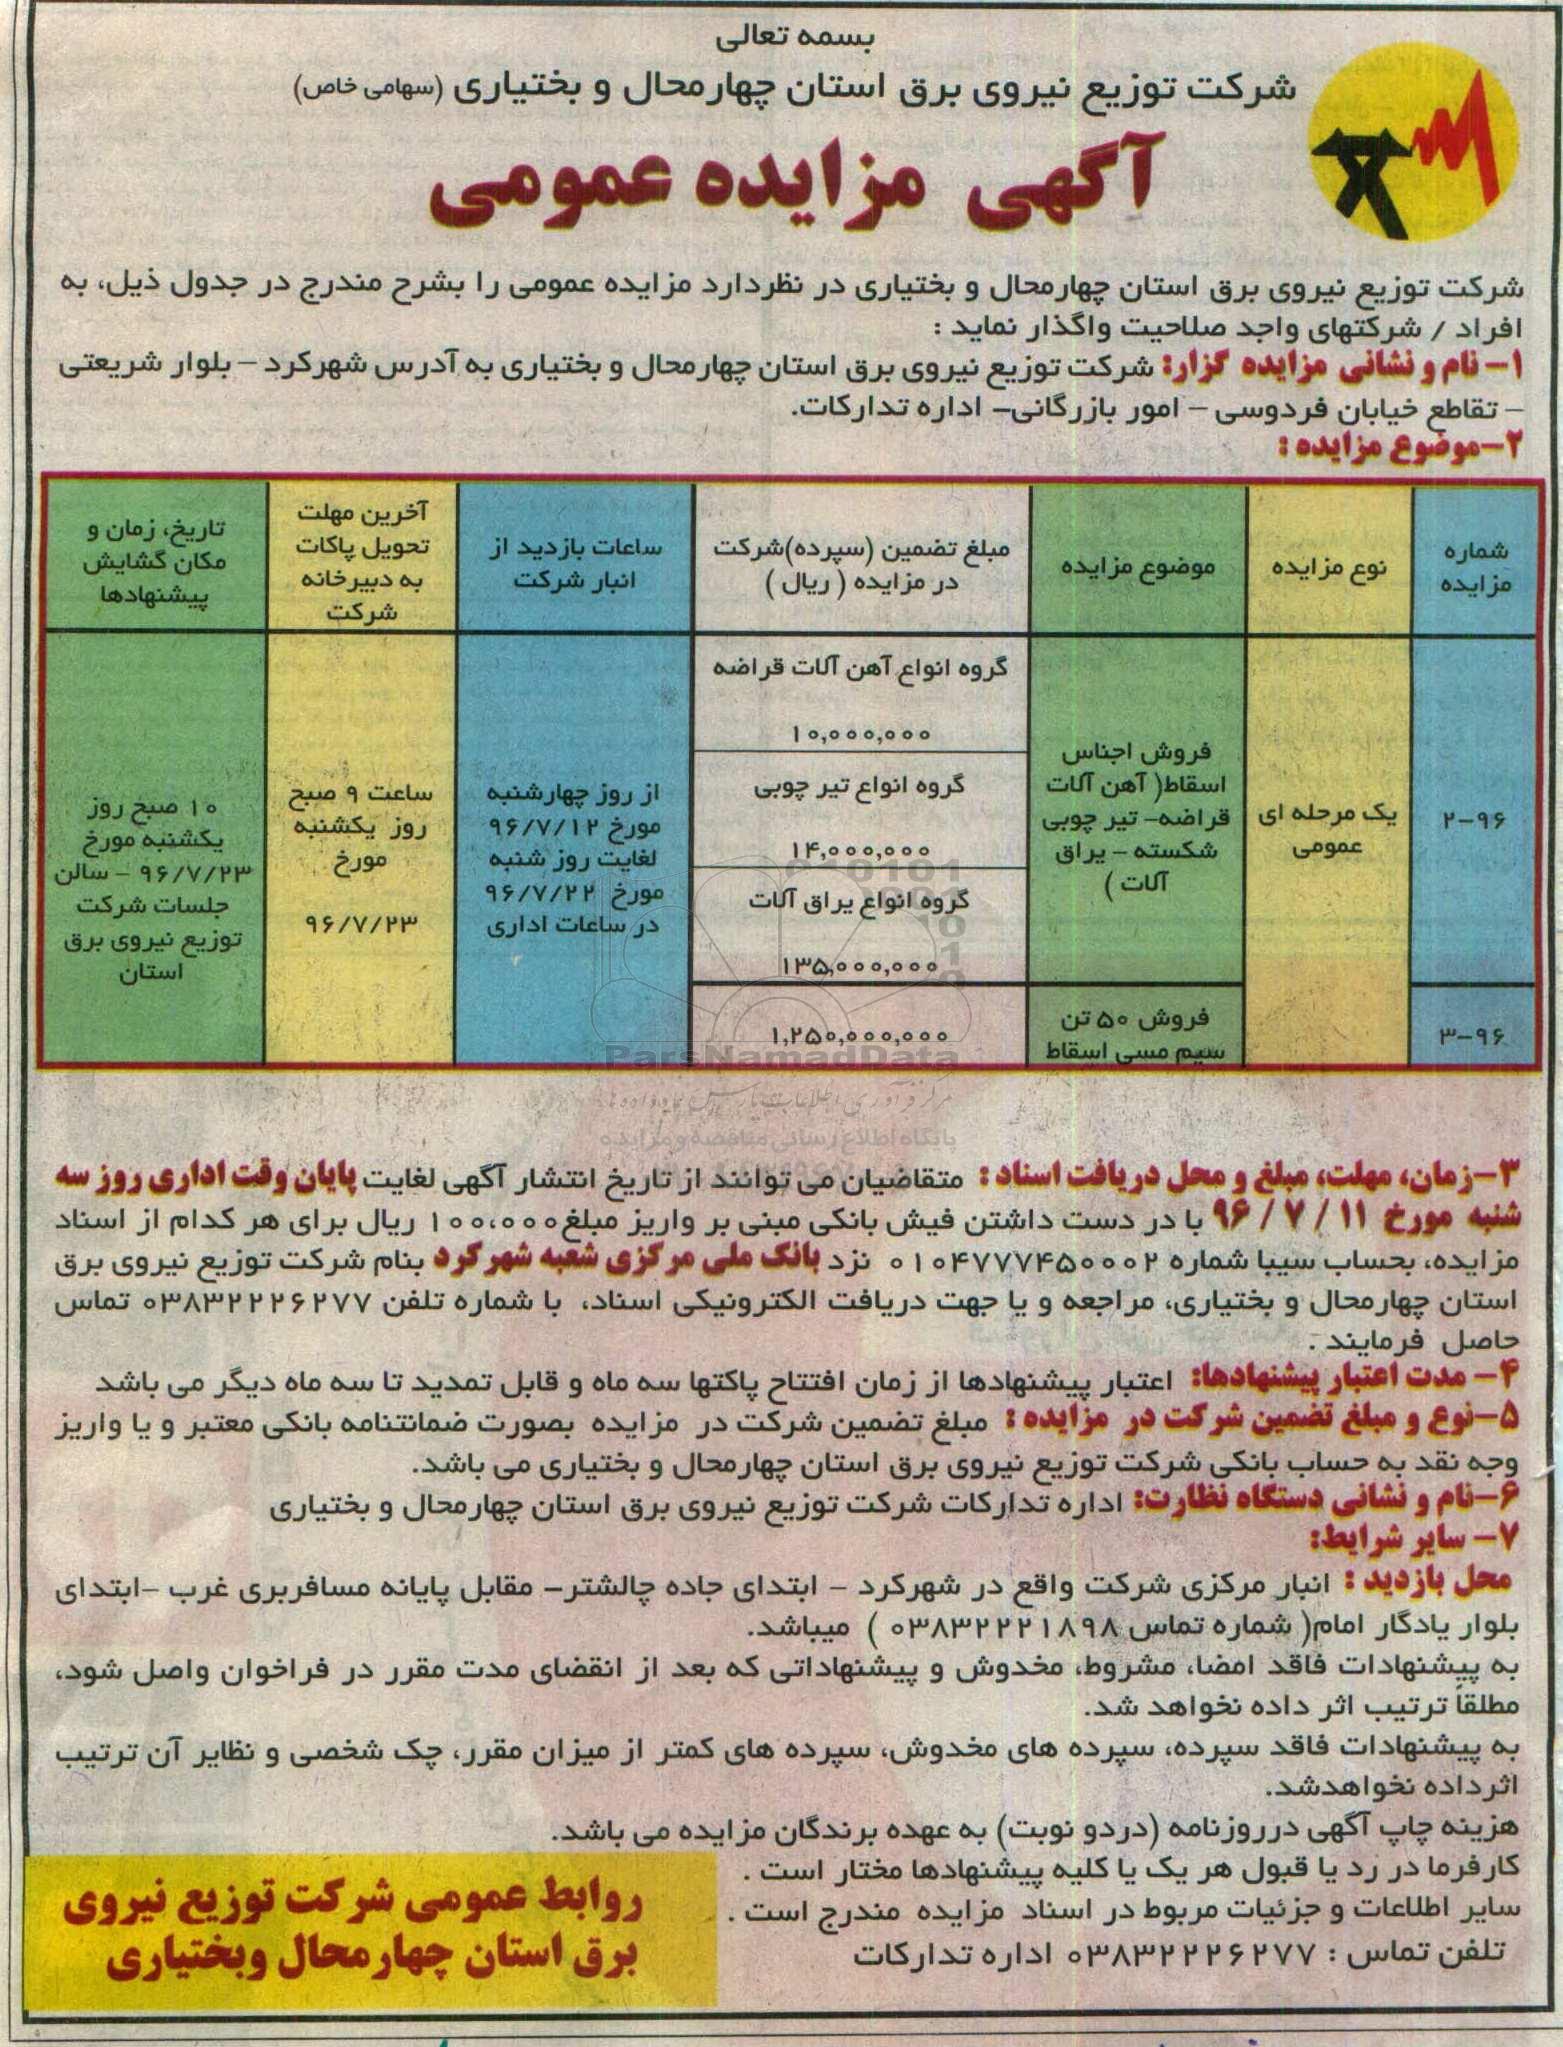 بسمه تعالی
شرکت توزیع نیروی برق استان چهارمحال و بختیاری (سهامی خاص)
آگهی مزایده عمومی
شرکت توزیع نیروی برق استان چهارمحال و بختیاری در نظردارد مزایده عمومی را بشرح مندرج در جدول ذیل، به
افراد / شرکتهای واجد صلاحیت واگذار نماید :
۱- نام و نشانی مزایده گزار: شرکت توزیع نیروی برق استان چهارمحال و بختیاری به آدرس شهرکرد – بلوار شریعتی
– تقاطع خیابان فردوسی – امور بازرگانی– اداره تدارکات.
۲-موضوع مزایده :
شماره
مزایده
نوع مزایده
موضوع مزایده
مبلغ تضمین (سپرده)شرکت
در مزایده ( ریال )
ساعات بازدید از
انبار شرکت
آخرین مهلت
تحویل پاکات
به دبیرخانه
شرکت
تاریخ، زمان و
مکان گشایش
پیشنهادها
۲-۹۶
یک مرحله ای
عمومی
فروش اجناس
اسقاط( آهن آلات
قراضه- تیر چوبی
شکسته – یراق
آلات )
گروه انواع آهن آلات قراضه
۱۰,۰۰۰,۰۰۰
گروه انواع تیر چوبی
۱۴,۰۰۰,۰۰۰
گروه انواع یراق آلات
۱۳۵,۰۰۰,۰۰۰
از روز چهارشنبه
مورخ ۹۶/۷/۱۲
لغایت روز شنبه
مورخ ۹۶/۷/۲۲
در ساعات اداری
ساعت ۹ صبح
روز یکشنبه
مورخ
۹۶/۷/۲۳
۱۰ صبح روز
یکشنبه مورخ
۹۶/۷/۲۳ – سالن
جلسات شرکت
توزیع نیروی برق
استان
۳-۹۶
فروش ۵۰ تن
سیم مسی اسقاط
۱,۲۵۰,۰۰۰,۰۰۰
ParsNamadData
پایگاه اطلاع رسانی مناقصه و مزایده
۳-زمان، مهلت، مبلغ و محل دریافت اسناد : متقاضیان می توانند از تاریخ انتشار آگهی لغایت پایان وقت اداری روز سه
شنبه مورخ ۱۱ / ۷ / ۹۶ با در دست داشتن فیش بانکی مبنی بر واریز مبلغ۱۰۰،۰۰۰ ریال برای هر کدام از اسناد
مزایده، بحساب سیبا شماره ۰۱۰۴۷۷۷۴۵۰۰۰۲ نزد بانک ملی مرکزی شعبه شهرکرد بنام شرکت توزیع نیروی برق
استان چهارمحال و بختیاری، مراجعه و یا جهت دریافت الکترونیکی اسناد، با شماره تلفن ۰۳۸۳۲۲۲۶۲۷۷ تماس
حاصل فرمایند .
۴- مدت اعتبار پیشنهادها: اعتبار پیشنهادها از زمان افتتاح پاکتها سه ماه و قابل تمدید تا سه ماه دیگر می باشد
۵-نوع و مبلغ تضمین شرکت در مزایده : مبلغ تضمین شرکت در مزایده بصورت ضمانتنامه بانکی معتبر و یا واریز
وجه نقد به حساب بانکی شرکت توزیع نیروی برق استان چهارمحال و بختیاری می باشد.
۶-نام و نشانی دستگاه نظارت: اداره تدارکات شرکت توزیع نیروی برق استان چهارمحال و بختیاری
۷- سایر شرایط:
محل بازدید : انبار مرکزی شرکت واقع در شهرکرد – ابتدای جاده چالشتر– مقابل پایانه مسافربری غرب –ابتدای
بلوار یادگار امام( شماره تماس ۰۳۸۳۲۲۲۱۸۹۸ ) میباشد.
به پیشنهادات فاقد امضا، مشروط، مخدوش و پیشنهاداتی که بعد از انقضای مدت مقرر در فراخوان واصل شود،
مطلقاً ترتیب اثر داده نخواهد شد.
به پیشنهادات فاقد سپرده، سپرده های مخدوش، سپرده های کمتر از میزان مقرر، چک شخصی و نظایر آن ترتیب
اثرداده نخواهدشد.
هزینه چاپ آگهی درروزنامه (دردو نوبت) به عهده برندگان مزایده می باشد.
کارفرما در رد یا قبول هر یک یا کلیه پیشنهادها مختار است .
سایر اطلاعات و جزئیات مربوط در اسناد مزایده مندرج است .
تلفن تماس : ۰۳۸۳۲۲۲۶۲۷۷ اداره تدارکات
روابط عمومی شرکت توزیع نیروی
برق استان چهارمحال وبختیاری